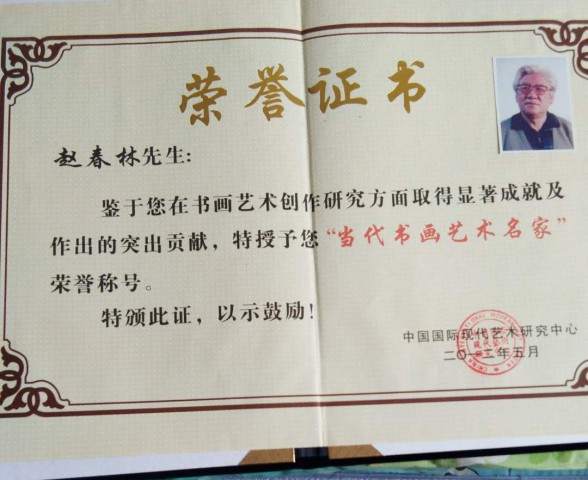 荣誉证书
赵春林先生:
鉴于您在书画艺术创作研究方面取得显著成就及
作出的突出贡献，特授予您“当代书画艺术名家”
荣誉称号。
特颁此证，以示鼓励!
中国国际现代艺术研究中心
二〇一二年五月